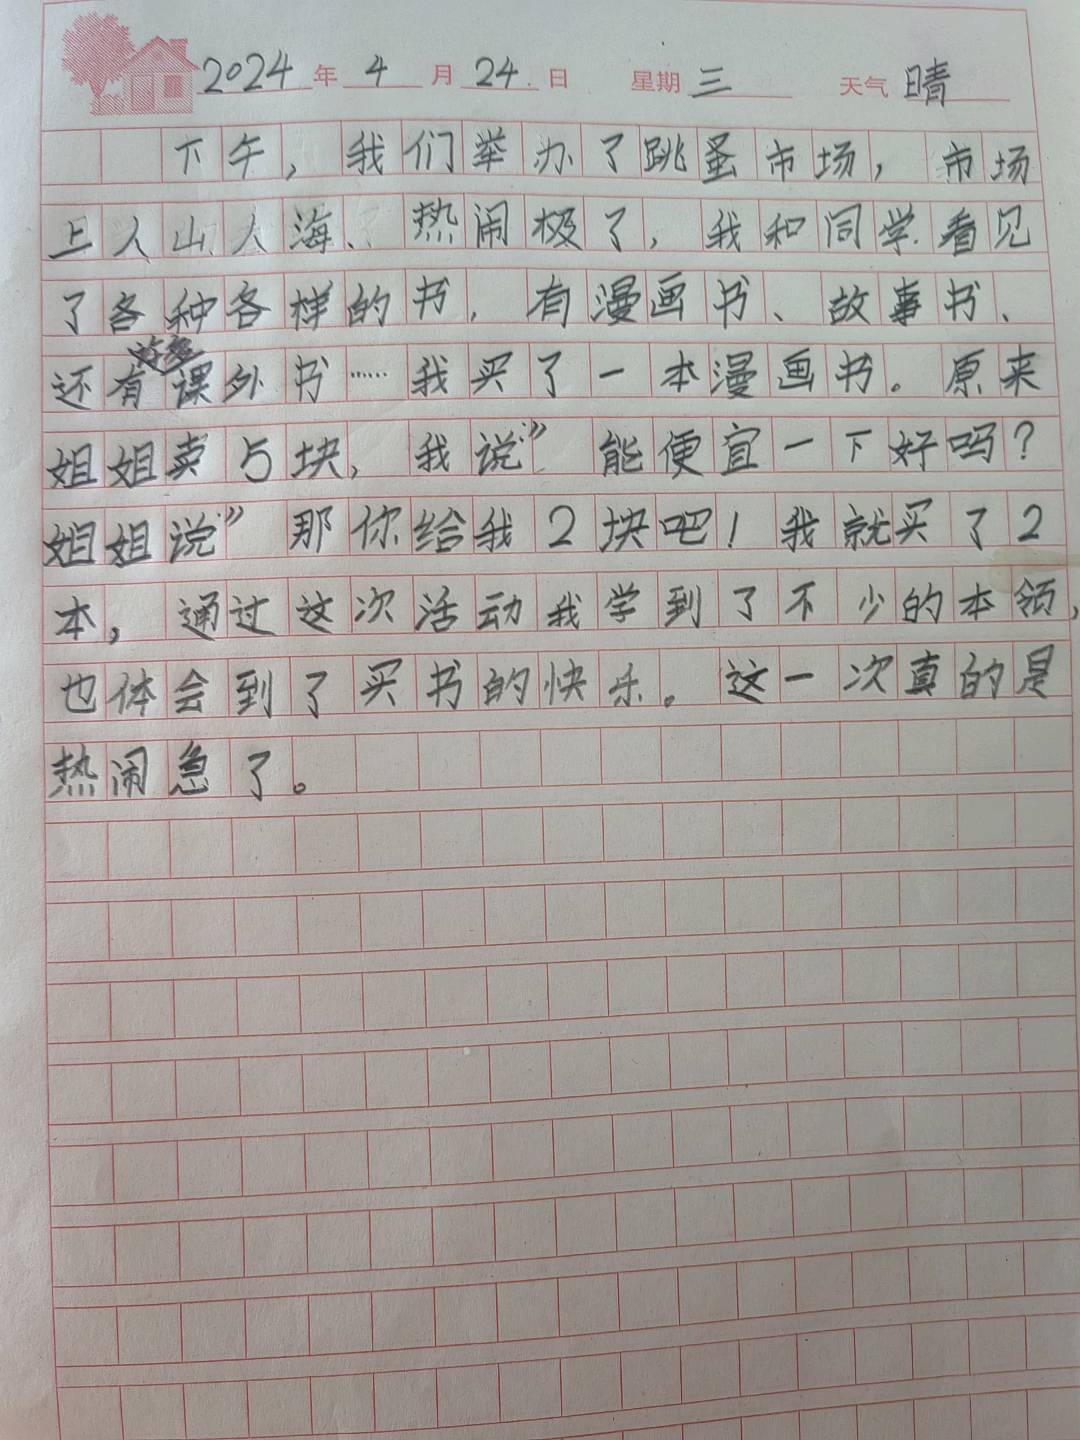 2024年4月24日 星期三 天气晴
下午，我们举办了跳蚤市场，市场
上人山人海、热闹极了，我和同学看见
了各种各样的书，有漫画书、故事书、
还有课外书……我买了一本漫画书。原来
姐姐卖5块，我说：”能便宜一下好吗？
姐姐说：”那你给我2块吧！我就买了2
本，通过这次活动我学到了不少的本领，
也体会到了买书的快乐。这一次真的是
热闹急了。